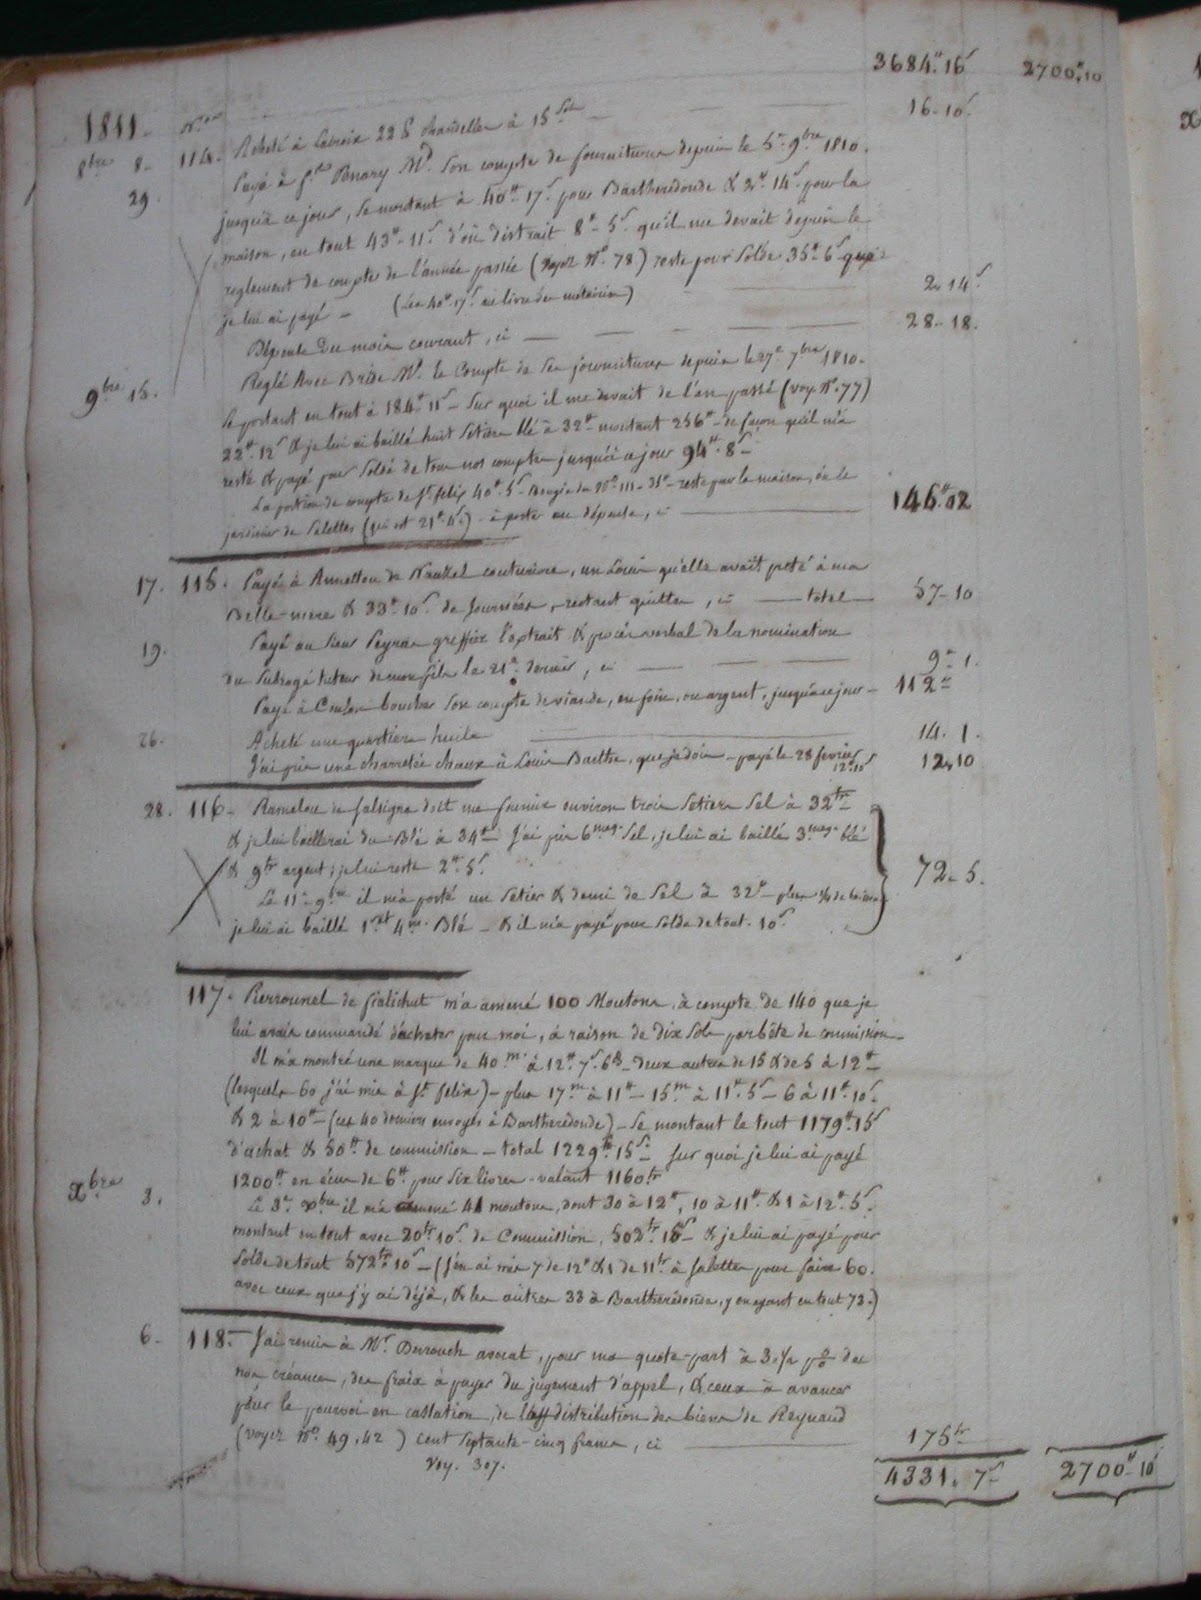 3684.# 16s 2700#.10
1811. Nos
8bre 8. 114. Acheté à Lacroix 22 ℔ chandelles à 15 sols 16-10s
29. Payé à Md. Son compte de fournitures depuis le 5e 9bre 1810.
jusqu'à ce jour, se montant à 40#-17s pour Bartheredonde & 2#.14s pour la
maison, en tout 43#-11s d'où distrait 8#-5s qu'il me devait depuis le
reglement de compte de l'année passée (voyez N° 78) reste pour solde 35#-6s que
je lui ai payé - (Les 40#.17s au livre des métairies) 2.14s
Dépense du mois courant, ci 28-18.
9bre 15. Reglé avec Brise Md. le compte de ses fournitures depuis le 27e 7bre 1810.
se portant en tout à 184#-11s - sur quoi il me devait de l'an passé (voy. N°.77)
22#.12s & je lui ai baillé huit setiers blé à 32# montant 256# - de façon qu'il m'a
resté & payé pour solde de tous nos comptes jusqu'à ce jour 94#.8s
La portion de compte de St felix 40#.5s - Bougie du N° 111 - 35# - reste pour la maison, ou le
jardinier de Salettes (qui est 21#.4s.) à porter en dépense, ci 146#.02
17. 115. Payé à Annettou de couturière, un Louis qu'elle avait preté à ma
Belle-mere & 33#.10s de journées, restant quittes, ci total 57-10
19. Payé au sieur Peyrac greffier l'extrait & procès verbal de la nomination
du subrogé tuteur de mon fils le 21e. dernier, ci 9# 1.
Payé à Coulon boucher son compte de viande, en foin, ou argent, jusqu'à ce jour - 112#
26. Acheté une quartière huile 14. 1.
J'ai pris une charretée chaux à Louis Barthe, que je dois - payé le 28 fevrier 12#10s 12.10
28. 116. Ramelou de falsigne doit me fournir environ trois setiers sel à 32tt
& je lui baillerai du Blé à 34# J'ai pris 6 meg. sel, je lui ai baillé 3. meg. blé
& 9tt argent; je lui reste 2#.5s 72-5.
Le 11e 9bre il m'a porté un setier & demi de sel à 32# plus
je lui ai baillé 1 set 4 me. Blé - & il m'a payé pour solde de tout. 10s
117. Perrounel de m'a amené 100 Moutons, à compte de 140 que je
lui avais commandé d'acheter pour moi, à raison de dix sols par bête de commission
Il m'a montré une marque de 40 m. à 12#.7s.6d - deux autres de 15 & de 5 à 12#
(lesquels 60 j'ai mis à St felix) - plus 17 m à 11# - 15 m à 11#.5s - 6 à 11#.10s
& 2 à 10# - (ces 40 derniers envoyés à Bartheredonde) - Se montant le tout 1179#.15s
d'achat & 50# de commission - total 1229#.15s. sur quoi je lui ai payé
1200# en écus de 6# pour six livres - valant 1160tt
Xbre 3. Le 3e Xbre il m'a amené 41 moutons, dont 30 à 12#, 10 à 11# & 1 à 12#.5s.
montant en tout avec 20tt.10s de Commission, 502tt.15s & je lui ai payé pour
solde de tout 572tt.10s - (J'en ai mis 7 de 12# & 1 de 11tt à Salettes pour faire 60.
avec ceux que j'y ai déjà, & les autres 33 à Bartheredonde, y en ayant en tout 73.)
6. 118. J'ai remis à Mr. Derrouch avocat, pour ma quote-part à 3.½ p % de
ma créance, des fraix à payer du jugement d'appel, & ceux à avancer
pour le pourvoi en cassation, de distribution des biens de Reynaud
(voyez N°. 49, 42) cent septante-cinq francs, ci 175tt
Voy. 307. 4331. 7s 2700#-10s